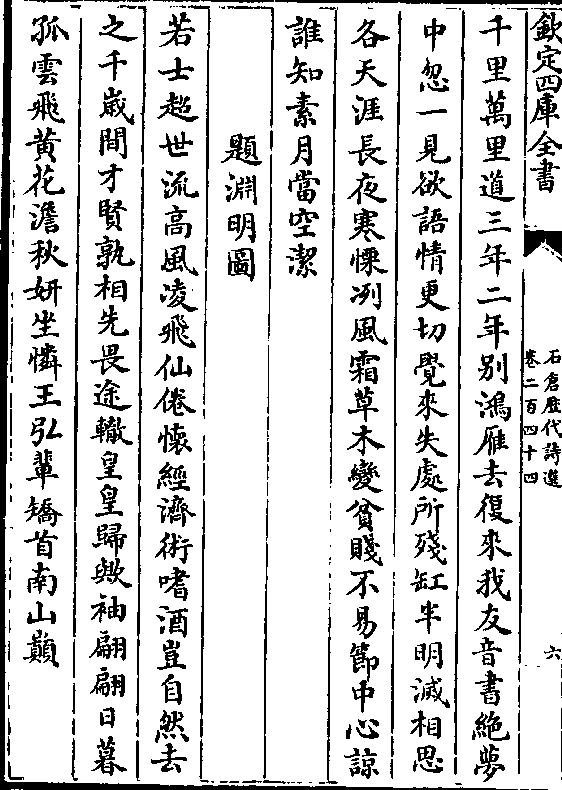 欽定四庫全書
石倉歷代詩選
卷二百四十四
六
千里萬里道三年二年别鴻雁去復來我友音書絶夢
中忽一見欲語情更切覺來失處所殘缸半明滅相思
各天涯長夜寒慄冽風霜草木變貧賤不易節中心諒
誰知素月當空潔
題淵明圖
若士超世流高風凌飛仙倦懷經濟術嗜酒豈自然去
之千嵗間才賢孰相先畏途轍皇皇歸歟袖翩翩日暮
孤雲飛黄花澹秋妍坐憐王弘輩矯首南山巔